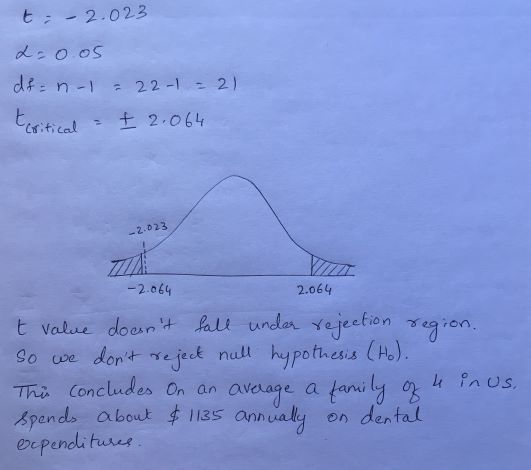 t = - 2.023
α = 0.05
df = n-1 = 22-1 = 21
tcritical = ± 2.064
-2.023
-2.064 2.064
t value doesn't fall under rejection region.
So we don't reject null hypothesis (H₀).
This concludes On an average a family of 4 in US.
spends about $ 1135 annually on dental
expenditures.